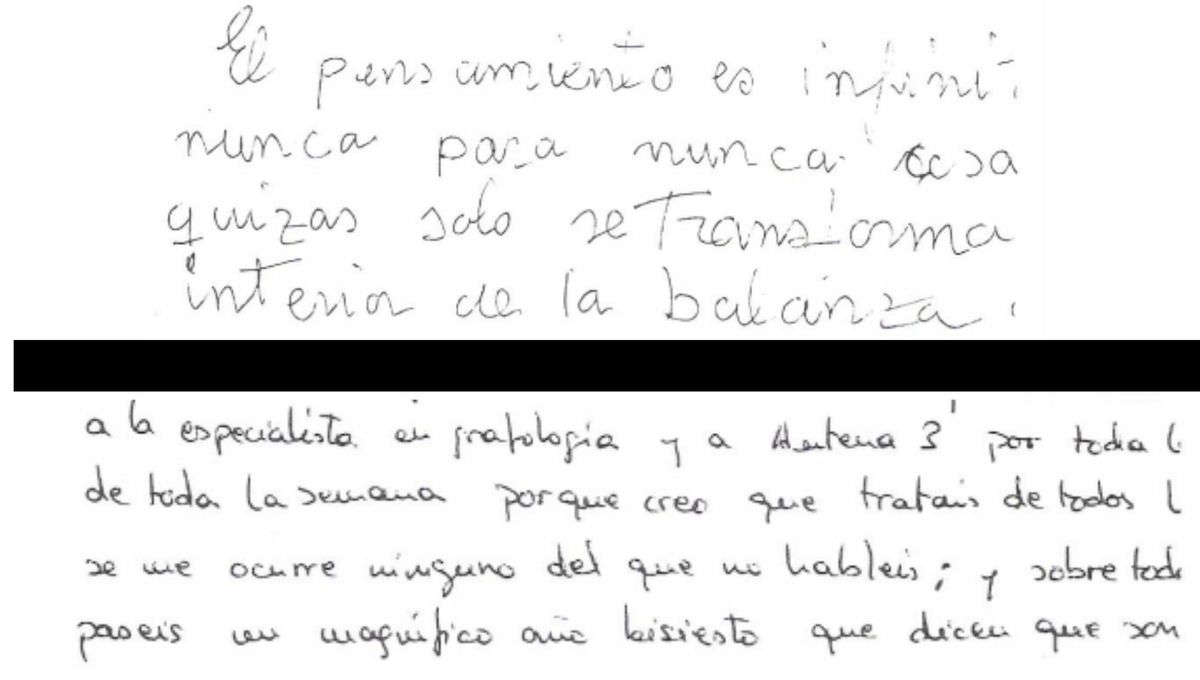 El pensamiento es infinit
nunca para nunca cesa
quizas solo se Transforma
interior de la balanza.
a la especialista en grafologia y a Antena 3 por toda l
de toda la semana porque creo que tratais de todos l
se me ocurre ninguno del que no hableis; y sobre todo
paseis un magnifico año bisiesto que dicen que son